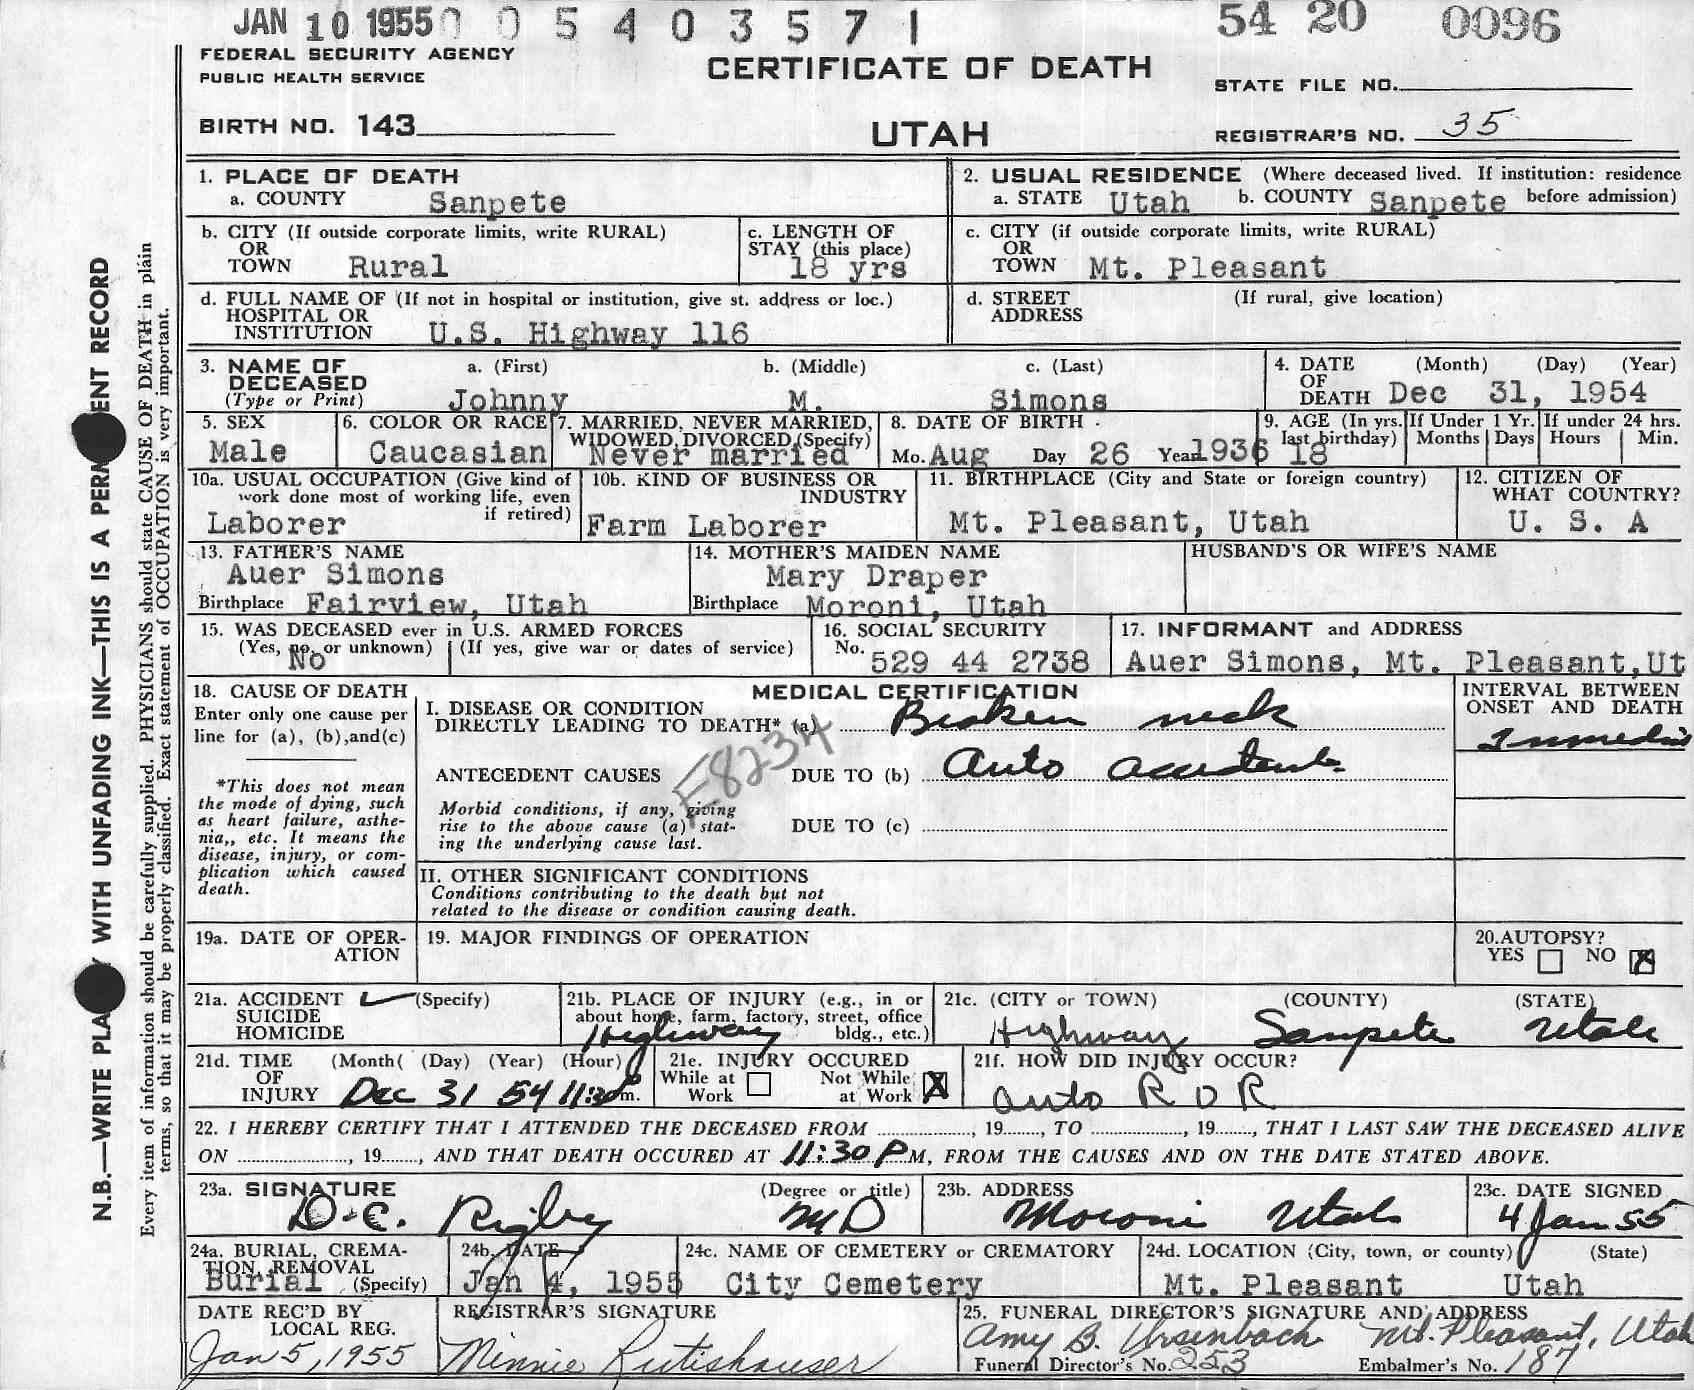 JAN 10 1955 0 0 5 4 0 3 5 7 1 54 20 0096
FEDERAL SECURITY AGENCY
PUBLIC HEALTH SERVICE
CERTIFICATE OF DEATH
STATE FILE NO.
BIRTH NO. 143
UTAH
REGISTRAR'S NO. 35
1. PLACE OF DEATH
a. COUNTY Sanpete
2. USUAL RESIDENCE (Where deceased lived. If institution: residence
a. STATE Utah b. COUNTY Sanpete before admission)
b. CITY (If outside corporate limits, write RURAL)
OR
TOWN Rural
c. LENGTH OF
STAY (this place)
18 yrs
c. CITY (if outside corporate limits, write RURAL)
OR
TOWN Mt. Pleasant
d. FULL NAME OF (If not in hospital or institution, give st. address or loc.)
HOSPITAL OR
INSTITUTION U.S. Highway 116
d. STREET (If rural, give location)
ADDRESS
3. NAME OF a. (First) b. (Middle) c. (Last)
DECEASED
(Type or Print) Johnny M. Simons
4. DATE (Month) (Day) (Year)
OF
DEATH Dec 31, 1954
5. SEX
Male
6. COLOR OR RACE
Caucasian
7. MARRIED, NEVER MARRIED,
WIDOWED, DIVORCED (Specify)
Never married
8. DATE OF BIRTH
Mo. Aug Day 26 Year 1936
9. AGE (In yrs.
last birthday)
18
If Under 1 Yr.
Months Days
If under 24 hrs.
Hours Min.
10a. USUAL OCCUPATION (Give kind of
work done most of working life, even
if retired)
Laborer
10b. KIND OF BUSINESS OR
INDUSTRY
Farm Laborer
11. BIRTHPLACE (City and State or foreign country)
Mt. Pleasant, Utah
12. CITIZEN OF
WHAT COUNTRY?
U. S. A
13. FATHER'S NAME
Auer Simons
Birthplace Fairview, Utah
14. MOTHER'S MAIDEN NAME
Mary Draper
Birthplace Moroni, Utah
HUSBAND'S OR WIFE'S NAME
15. WAS DECEASED ever in U.S. ARMED FORCES
(Yes, no, or unknown) (If yes, give war or dates of service)
No
16. SOCIAL SECURITY
No. 529 44 2738
17. INFORMANT and ADDRESS
Auer Simons, Mt. Pleasant,Ut
18. CAUSE OF DEATH
Enter only one cause per
line for (a), (b),and(c)
*This does not mean
the mode of dying, such
as heart failure, asthe-
nia,, etc. It means the
disease, injury, or com-
plication which caused
death.
MEDICAL CERTIFICATION
I. DISEASE OR CONDITION
DIRECTLY LEADING TO DEATH* (a) Broken neck
E8234
ANTECEDENT CAUSES DUE TO (b) Auto accident
Morbid conditions, if any, giving
rise to the above cause (a) stat-
ing the underlying cause last.
DUE TO (c)
II. OTHER SIGNIFICANT CONDITIONS
Conditions contributing to the death but not
related to the disease or condition causing death.
INTERVAL BETWEEN
ONSET AND DEATH
19a. DATE OF OPER-
ATION
19. MAJOR FINDINGS OF OPERATION
20.AUTOPSY?
YES NO X
21a. ACCIDENT (Specify)
SUICIDE
HOMICIDE
21b. PLACE OF INJURY (e.g., in or
about home, farm, factory, street, office
bldg., etc.)
Highway
21c. (CITY or TOWN) (COUNTY) (STATE)
Highway Sanpete Utah
21d. TIME (Month( (Day) (Year) (Hour)
OF
INJURY Dec 31 54 11:30 p m.
21e. INJURY OCCURED
While at
Work
Not While
at Work X
21f. HOW DID INJURY OCCUR?
Auto R O R
22. I HEREBY CERTIFY THAT I ATTENDED THE DECEASED FROM , 19 , TO , 19 , THAT I LAST SAW THE DECEASED ALIVE
ON , 19 , AND THAT DEATH OCCURED AT 11:30 P M, FROM THE CAUSES AND ON THE DATE STATED ABOVE.
23a. SIGNATURE (Degree or title)
D.C. Rigby MD
23b. ADDRESS
Moroni Utah
23c. DATE SIGNED
4 Jan 55
24a. BURIAL, CREMA-
TION, REMOVAL
Burial (Specify)
24b. DATE
Jan 4, 1955
24c. NAME OF CEMETERY or CREMATORY
City Cemetery
24d. LOCATION (City, town, or county) (State)
Mt. Pleasant Utah
DATE REC'D BY
LOCAL REG.
Jan 5, 1955
REGISTRAR'S SIGNATURE
Minnie Rutishauser
25. FUNERAL DIRECTOR'S SIGNATURE AND ADDRESS
Amy B. Ursenbach Mt. Pleasant, Utah
Funeral Director's No. 253 Embalmer's No. 187
N.B.—WRITE WITH UNFADING INK—THIS IS A RECORD
Every item of information should be carefully supplied. PHYSICIANS should state CAUSE OF DEATH in plain
terms, so that it may be properly classified. Exact statement of OCCUPATION is very important.